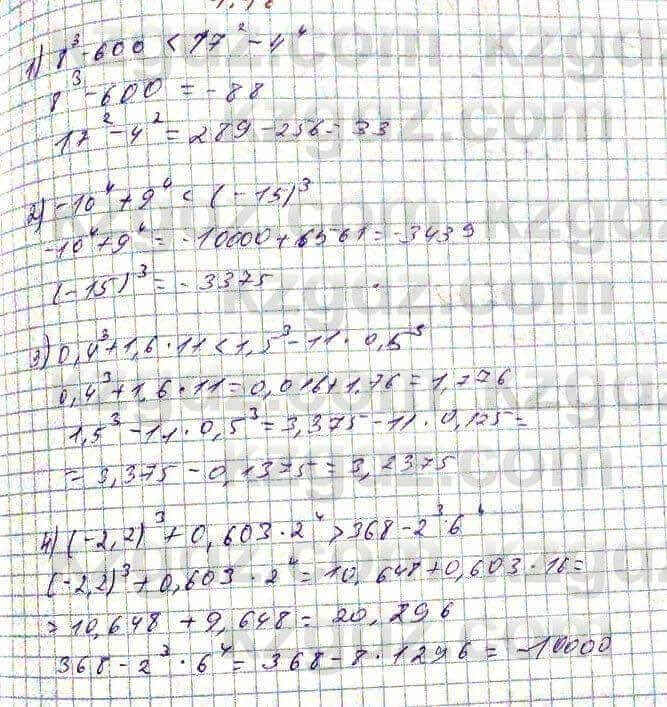 1) 8³-600 < 17²-4⁴
8³-600 = -88
17²-4² = 289-256=33
2) -10⁴+9⁴ < (-15)³
-10⁴+9⁴ = -10000+6561=-3439
(-15)³ = -3375
3) 0,4³+1,6·11<1,5³-11·0,5³
0,4³+1,6·11=0,016+1,76=1,776
1,5³-11·0,5³=3,375-11·0,125=
= 3,375-0,1375=3,2375
4) (-2,2)³+0,603·2⁴>368-2³·6⁴
(-2,2)³+0,603·2⁴=10,648+0,603·16=
= 10,648+9,648=20,296
368-2³·6⁴=368-8·1296=-10000
kzgdz.com